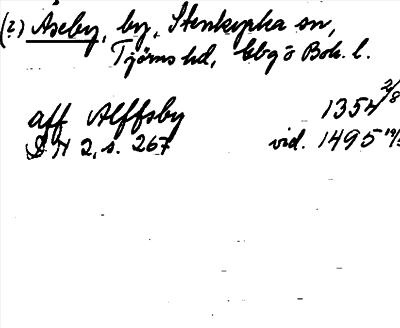 (2) Åseby, by, Stenkyrka sn,
Tjörns hd, Gbg o Boh. l.
aff Alffsby 1354 2/8
DN 2, s. 267 vid. 1495